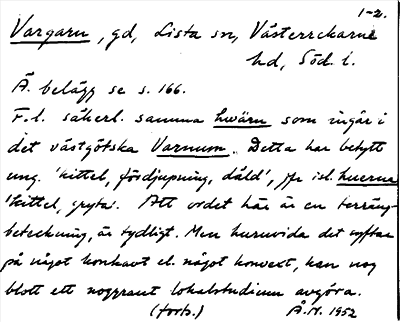 1-2.
Vargarn, gd, Lista sn, Västerrekarne
hd, Söd. l.
Ä. belägg se s. 166.
F.l. säkerl. samma hwärn som ingår i
det västgötska Varnum. Detta har betytt
ung. 'kittel, fördjupning, däld', jfr isl. huerna
'kittel, gryta'. Att ordet här är en terräng-
beteckning, är tydligt. Men huruvida det syftar
på något konkavt el. något konvext, kan nog
blott ett noggrannt lokalstudium avgöra.
(forts.) Å.N. 1952